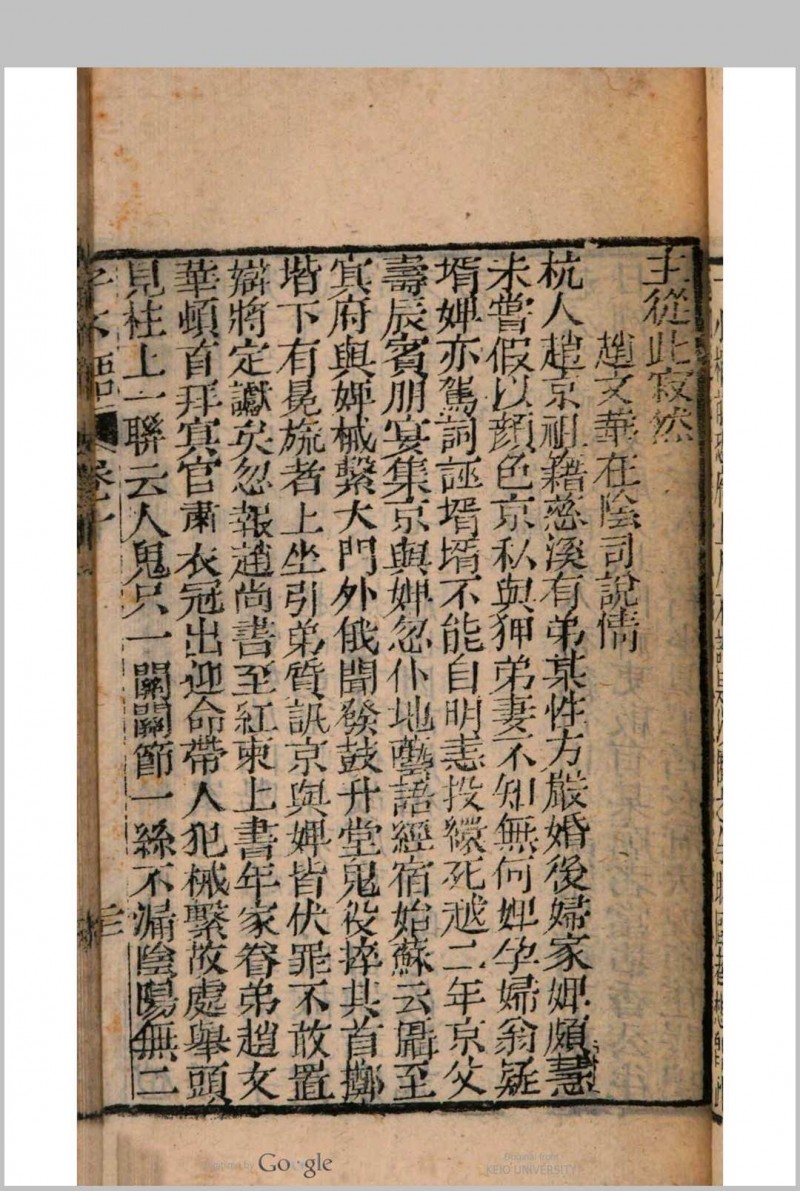 主從此寂然
趙文華在陰司說情
杭人趙京祖籍慈溪有弟某性方嚴婚後婦家婢頗慧
未嘗假以顏色京私與狎弟妻不知無何婢孕婦翁疑
壻婢亦駕詞誣壻壻不能自明恚投繯死越二年京父
壽辰賓朋宴集京與婢忽仆地囈語經宿始蘇云攝至
冥府與婢械繫大門外俄聞發鼓升堂鬼役捽其首擲
堦下有冕旒者上坐引弟質訊京與婢皆伏罪不敢置
辯將定讞矣忽報趙尚書至紅柬上書年家眷弟趙文
華頓首拜冥官肅衣冠出迎命帶人犯械繫故處舉頭
見柱上一聯云人鬼只一關關節一絲不漏陰陽無二
子不語 卷十
Google
Original from
KEIO UNIVERSITY